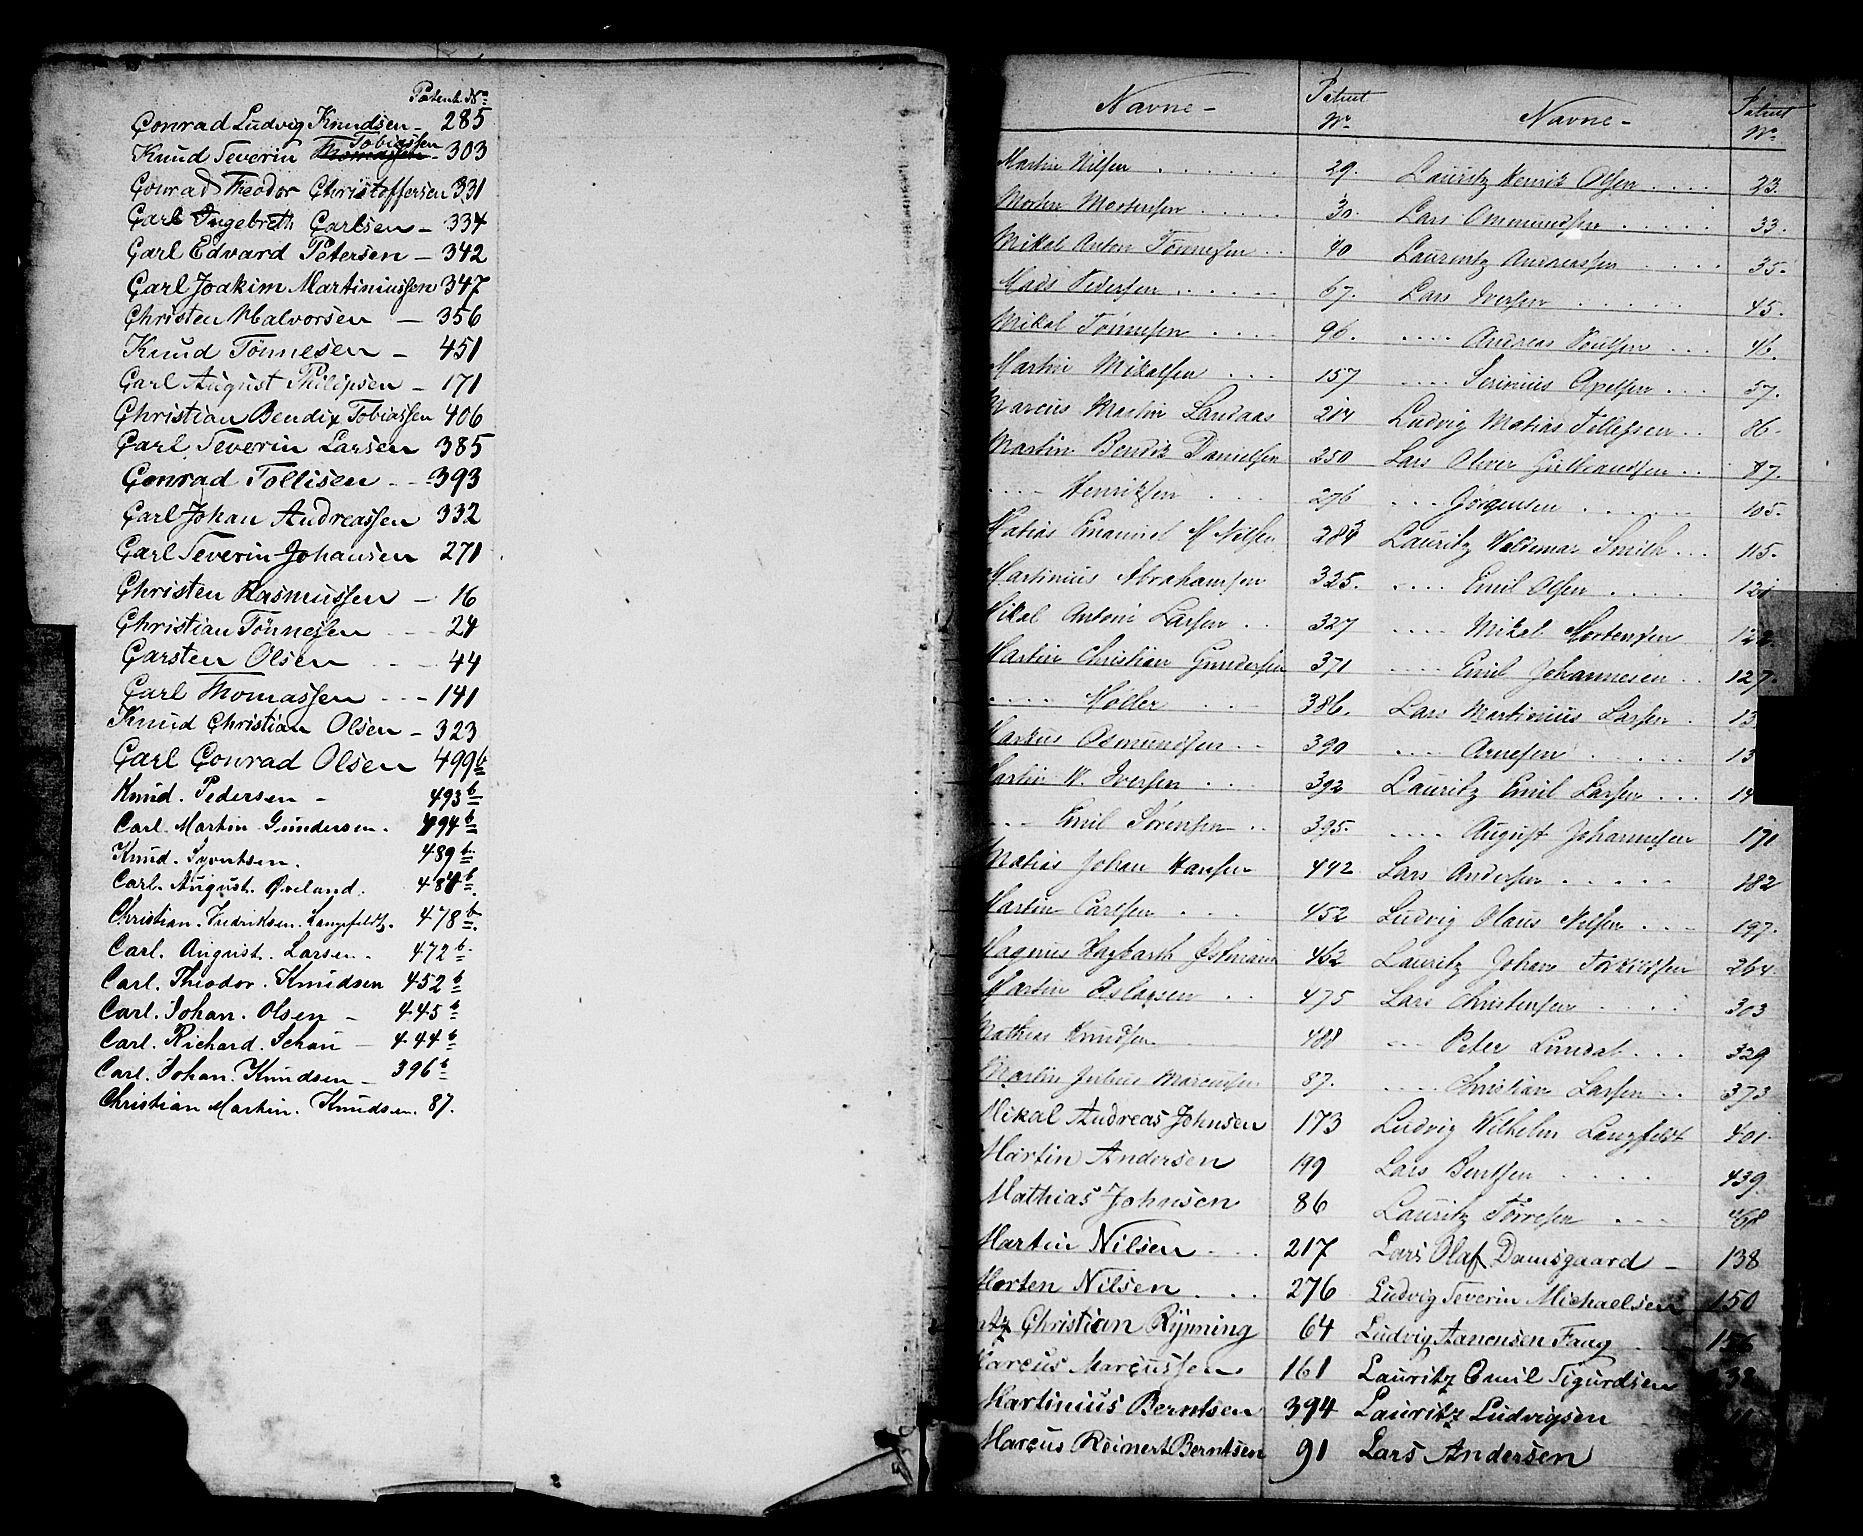 Patent. No
Conrad Ludvig Knudsen - 285
Knud Severin Thomassen Tobiassen - 303
Conrad Theodor Christoffersen 331
Carl Ingebreth Carlsen - 334
Carl Edvard Petersen - 342
Carl Joakim Martiniussen 347
Christen Halvorsen - 356
Knud Tönnesen - 451
Carl August Philipsen - 171
Christian Bendix Tobiassen 406
Carl Severin Larsen 385
Conrad Tollisen - - 393
Carl Johan Andreassen 332
Carl Severin Johansen 271
Christen Rasmussen - 16
Christian Tönnessen - - - 24
Carsten Olsen - - - 44
Carl Thomassen - - - 141
Knud Christian Olsen - 323
Carl Conrad Olsen 499b
Knud. Pedersen - 493b
Carl. Martin Gundersen. 494b
Knud. Syvertsen. 489b
Carl. August. Øveland. 484b
Christian. Fredriksen. Langfeldt. 478b
Carl. August. Larsen. 472b
Carl. Theodor. Knudsen 452b
Carl. Johan. Olsen - 445b
Carl. Richard. Schau - 444b
Carl. Johan. Knudsen - 396b
Christian Martin. Knudsen. 87.
Navne - Patent No
Martin Nilsen . . . . . . 29.
Morten Mortensen . . . . . 30.
Mikal Anton Tönnessen . . 40
Mads Pedersen . . . . . 67.
Mikal Tönnesen . . . . 96.
Martin Mikalsen . . . 157
Marcus Martin Landaas 214
Martin Bendik Danielsen 250
. . . . Henriksen . . . 276
Matias Emanuel M Nilsen 284
Martinius Abrahamsen 325.
Mikal Antoni Larsen . . 327
Martin Christian Gundersen 371
. . . . Møller . . . 386.
Markus Osmundsen . . 390
Martin W. Iversen . . . 392
. . . Emil Sörensen . . 395.
Matias Johan Hansen 442
Martin Carlsen . . . 452
Magnus Hagbarth Østmann 462
Martin Aslagsen . . 475
Mathias Knudsen 488
Martin Julius Marcussen 87.
Mikal Andreas Johnsen 173
Martin Andersen 199
Mathias Johnsen 86
Martin Nilsen . . . 217
Morten Nilsen . . . 276
Christian Rynning 64
Marcus Marcussen 161
Martinius Berntsen 394
Marcus Reinert Berntsen 91
Navne - Patent No
Lauritz Henrik Olsen . . . . 23.
Lars Ommundsen . . . . . 33.
Laurentz Andreassen . . . . 35.
Lars Iversen . . . . . . 45.
. . . . Andreas Poulsen . . . 46.
. . . . Serinius Apelsen . . . 57.
Ludvig Matias Tellefsen . . 86.
Lars Oliver Guttormsen . . 87.
. . . Jörgensen . . . . . . 105.
Lauritz Waldemar Smith . . . 115.
. . . . Emil Olsen . . . . 121
. . . . Mikal Mortensen 122.
. . . . Emil Johannesen . . 127.
Lars Martinius Larsen . 13
. . . Arnesen . . . . . . 13
Lauritz Emil Larsen . . . 14
. . . . August Johannesen 171
Lars Andersen . . . . . 182
Ludvig Olaus Nilsen . . . 197.
Lauritz Johan Tönnesen 264
Lars Christensen . . . . 303
. . . Peter Lundal . . . 329
. . . . Christian Larsen . . 373
Ludvig Wilhelm Langfeldt 401.
Lars Bentsen . . . . . 439.
Lauritz Torresen . . . 468
Lars Olaf Damsgaard - 138
Ludvig Severin Michaelsen 150
Ludvig Aanensen Faug 156
Lauritz Emil Sigurdsen 38
Lauritz Ludvigsen
Lars Andersen